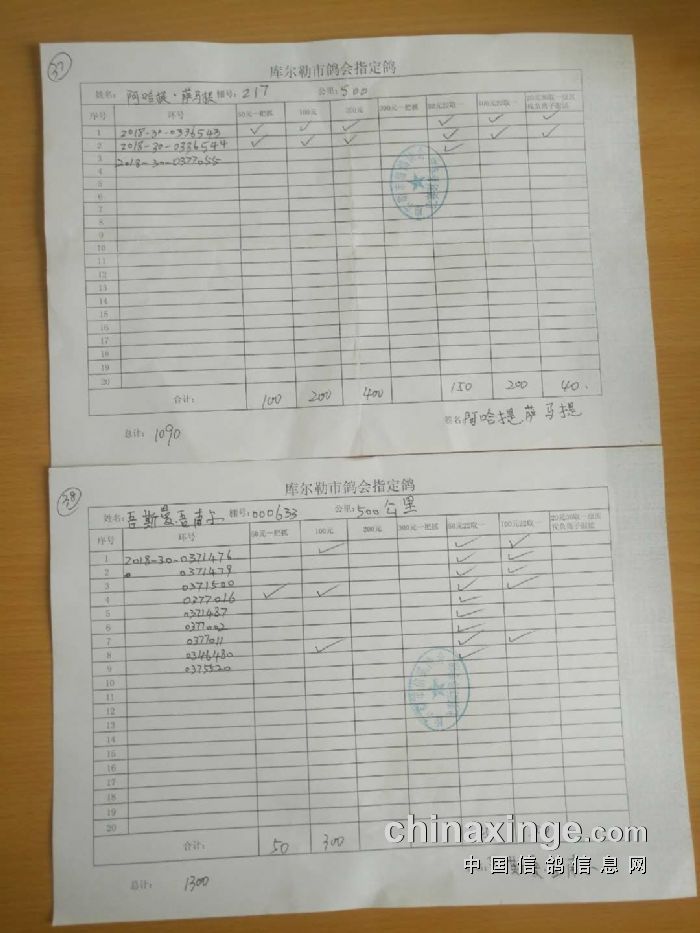 37
库尔勒市鸽会指定鸽
姓名: 阿哈提·萨马提 棚号: 217 公里: 500
序号 环号 50元一把抓 100元 200元 300元一把抓 50元22取一 100元22取一
1 2018-30-0336543 ✓ ✓ ✓ ✓ ✓ ✓
2 2018-30-0336544 ✓ ✓ ✓ ✓ ✓ ✓
3 2018-30-0377055 ✓
4
5
6
7
8
9
10
11
12
13
14
15
16
17
18
19
20
合计: 100 200 400 150 200 40.
总计: 1090 签名 阿哈提萨马提
38
库尔勒市鸽会指定鸽
姓名: 吾斯曼吾 棚号: 000633 公里: 500公里
序号 环号 50元一把抓 100元 200元 300元一把抓 50元22取一 100元22取一
1 2018-30-0371476 ✓ ✓ ✓
2 0371479 ✓ ✓
3 0371500 ✓ ✓
4 0377016 ✓ ✓ ✓ ✓
5 0371487 ✓
6 0377002 ✓
7 0377011 ✓ ✓ ✓
8 0346480 ✓
9 0375520
10
11
12
13
14
15
16
17
18
19
20
合计: 50 300
总计: 1300
chinaxinge.com
中国信鸽信息网